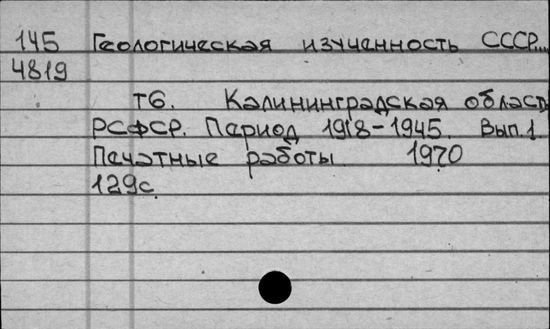 145 Геологическая изученность СССР...
4819
т6. Калининградская област
РСФСР. Период 1918-1945. Вып.1
Печатные работы 1970
129с.